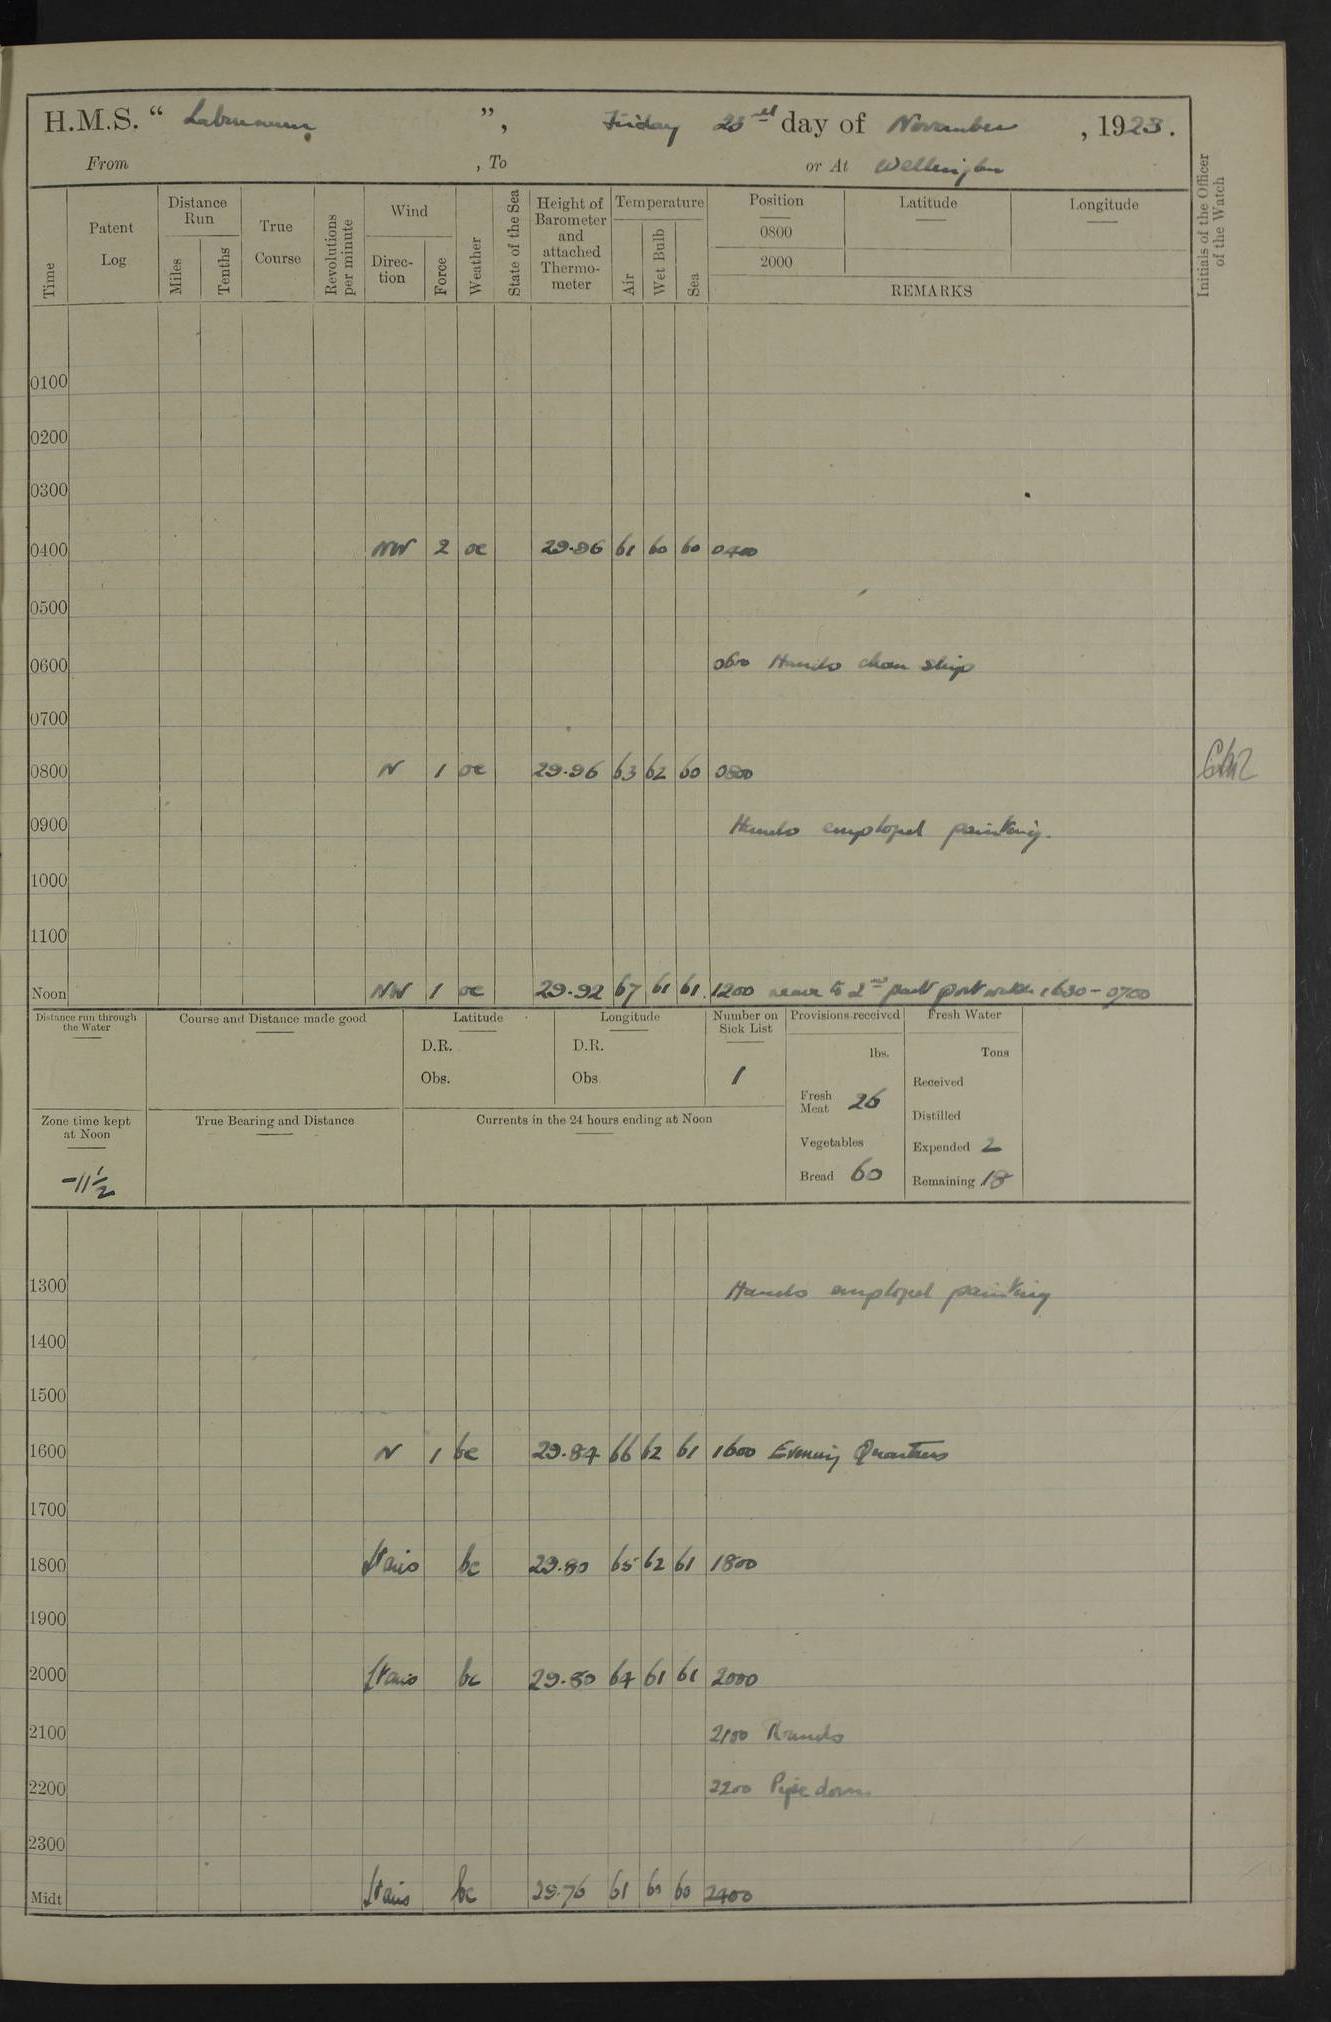 H.M.S. “ Laburnum ”, Friday 23rd day of November, 1923.
From , To or At Wellington
Time
Patent Log
Distance Run
Miles
Tenths
True Course
Revolutions per minute
Wind
Direction
Force
Weather
State of the Sea
Height of Barometer and attached Thermometer
Temperature
Air
Wet Bulb
Sea
Position Latitude Longitude
0800
2000
REMARKS
Initials of the Officer of the Watch
0100
0200
0300
0400 NW 2 oc 29.96 61 60 60 0400
0500
0600 0600 Hands clean ship
0700
0800 N 1 oc 29.96 63 62 60 0800
0900 Hands employed painting.
1000
1100
Noon NW 1 oc 29.92 67 61 61 1200 Leave to 2nd part port watch 1630-0700
Distance run through the Water
Course and Distance made good
Latitude
D.R.
Obs.
Longitude
D.R.
Obs
Number on Sick List
1
Provisions received
lbs.
Fresh Meat 26
Vegetables
Bread 60
Fresh Water
Tons
Received
Distilled
Expended 2
Remaining 18
Zone time kept at Noon
-11½
True Bearing and Distance
Currents in the 24 hours ending at Noon
1300 Hands employed painting
1400
1500
1600 N 1 bc 29.84 66 62 61 1600 Evening Quarters
1700
1800 Airs bc 29.80 65 62 61 1800
1900
2000 Airs bc 29.80 64 61 61 2000
2100 2100 Rounds
2200 2200 Pipe down
2300
Midt Airs bc 29.76 61 60 60 2400